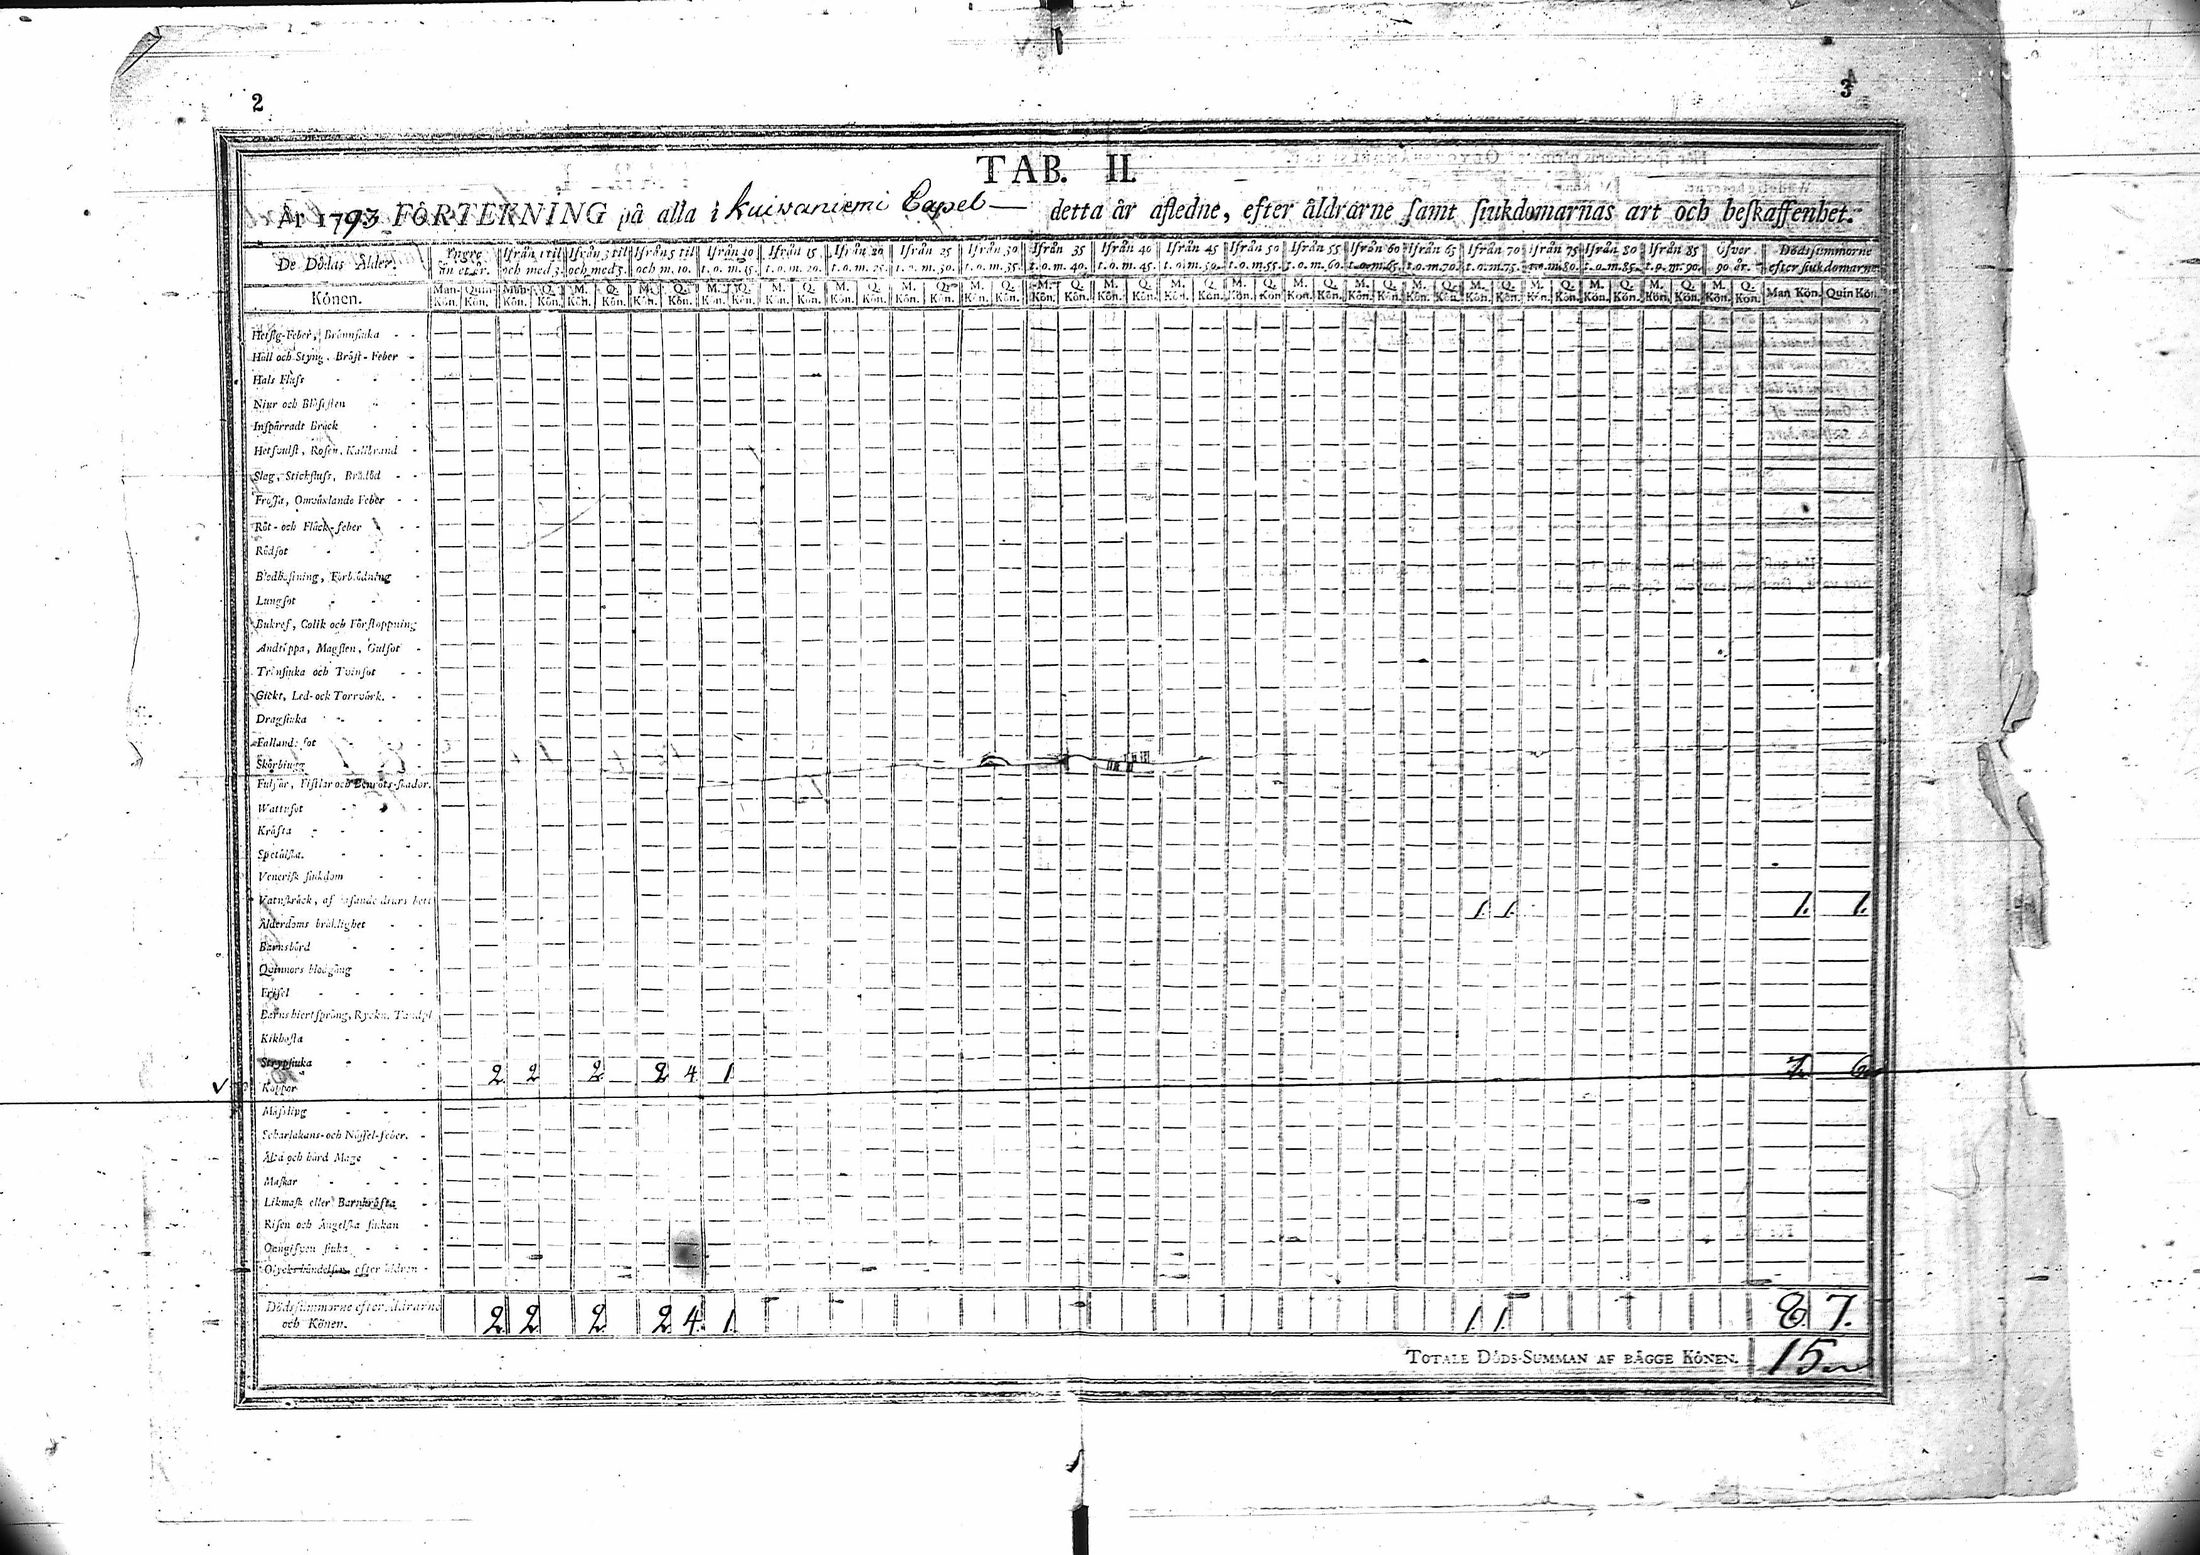 2
3
TAB. II.
År 1793 FÖRTEKNING på alla i Kuivaniemi Capel detta år aflednе, efter åldrarne samt siukdomarnas art och beskaffenhet.
De Dödas Ålder. Yngre än et år. Ifrån 1 til och med 3. Ifrån 3 til och med 5. Ifrån 5 til och m. 10. Ifrån 10 t.o.m. 15. Ifrån 15 t.o.m. 20. Ifrån 20 t.o.m. 25. Ifrån 25 t.o.m. 30. Ifrån 30 t.o.m. 35. Ifrån 35 t.o.m. 40. Ifrån 40 t.o.m. 45. Ifrån 45 t.o.m. 50. Ifrån 50 t.o.m. 55. Ifrån 55 t.o.m. 60. Ifrån 60 t.o.m. 65. Ifrån 65 t.o.m. 70. Ifrån 70 t.o.m. 75. Ifrån 75 t.o.m. 80. Ifrån 80 t.o.m. 85. Ifrån 85 t.o.m. 90. Öfver 90 år. Dödssummorne efter siukdomarne
Könen. Man Kön. Quin Kön. Man Kön. Q. Kön. M. Kön. Q. Kön. M. Kön. Q. Kön. M. Kön. Q. Kön. M. Kön. Q. Kön. M. Kön. Q. Kön. M. Kön. Q. Kön. M. Kön. Q. Kön. M. Kön. Q. Kön. M. Kön. Q. Kön. M. Kön. Q. Kön. M. Kön. Q. Kön. M. Kön. Q. Kön. M. Kön. Q. Kön. M. Kön. Q. Kön. M. Kön. Q. Kön. M. Kön. Q. Kön. M. Kön. Q. Kön. M. Kön. Q. Kön. M. Kön. Q. Kön. Man Kön. Quin Kön.
Hetsig-Feber, Brännsiuka
Håll och Styng, Bröst-Feber
Hals Fluss
Niur och Blåsesten
Inspärradt Bråck
Hetsvulst, Rosen, Kallbrand
Slag, Stickfluss, Brådöd
Frossa, Omväxlande Feber
Röt- och Fläck-feber
Rödsot
Blodhostning, Förblödning
Lungsot
Bukref, Colik och Förstoppning
Andtäppa, Magsten, Gulsot
Trånsiuka och Tvinsot
Gickt, Led- ock Torrvärk.
Dragsiuka
Fallande sot
Skörbiugg
Fulsår, Fistlar och Benröts-skador.
Wattusot
Kräfta
Spetälska.
Venerisk siukdom
Vatuskräck, af rasande diurs bett
Ålderdoms bräcklighet 1. 1. 1. 1.
Barnsbörd
Quinnors blodgång
Frösel
Barns hiertsprång, Ryckn. Tandpl
Kikhosta
Strypsiuka
Koppor 2 2 2 2 4 1 7. 6
Mässling
Scharlakans- och Nässel-feber.
Älta och hård Mage
Maskar
Likmask eller Barnkräfta
Risen och Ängelska siukan
Oangifven siuka
Olycks händelsen, efter åldren
Dödssummorne efter åldrarne och Könen. 2 2 2 2 4. 1. 1. 1. 8. 7.
TOTALE DÖDS-SUMMAN AF BÄGGE KÖNEN. 15